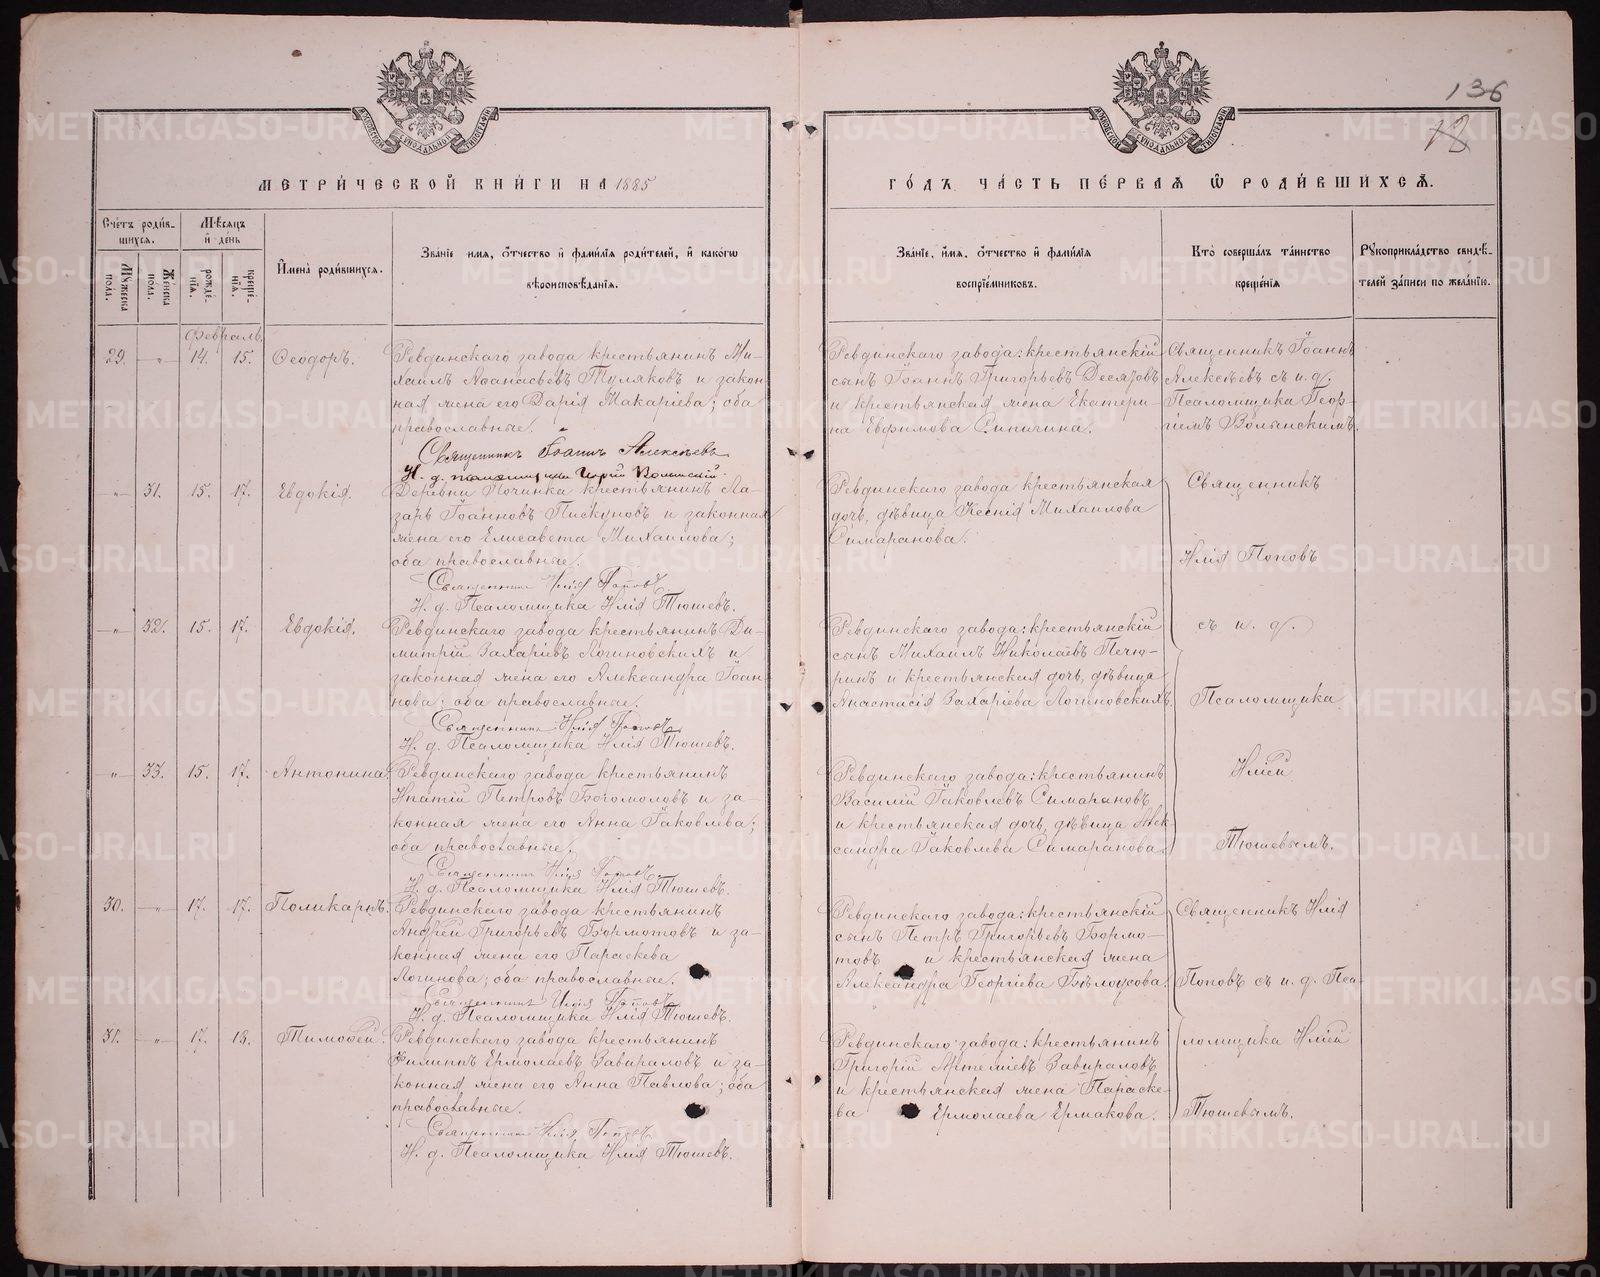 136
18
МЕТРИ́ЧЕСКОЙ КНИ́ГИ НА 1885
ГО́ДЪ ЧА́СТЬ ПЕ́РВАѦ Ѿ РОДИ́ВШИХСѦ.
Сче́тъ роди́в-
шихся.
Мѣ́сяцъ
и҆ де́нь
Мꙋжеска по́ла.
Же́нска по́ла.
рожде́-
нїѧ.
креще́-
нїѧ.
И҆мена̀ роди́вшихсѧ.
Зва́нїе имѧ, ѻ҆́тчество и҆ фамилїѧ роди́телей, и҆ како́гѡ
вѣроисповѣ́данїѧ.
Зва́нїе, и҆́мѧ, ѻ҆́тчество и҆ фами́лїѧ
воспрїе́мниковъ.
Кто̀ соверша́лъ та́инство
креще́нїѧ
Рꙋкоприкла́дство свидѣ́-
телей за́писи по жела́нїю.
Февраль.
29. —„— 14. 15. Ѳеодоръ.
Ревдинскаго завода крестьянинъ Ми-
хаилъ Аѳанасьевъ Туляковъ и закон-
ная жена его Дарія Макаріева; оба
православные.
Священникъ Іоаннъ Алексѣевъ
И. д. псаломщика Георгій Волынскій.
Ревдинскаго завода: крестьянскій
сынъ Іоаннъ Григорьевъ Десятовъ
и крестьянская жена Екатери-
на Евфимова Синичина.
Священникъ Іоаннъ
Алексѣевъ съ и. д.
Псаломщика Геор-
гіемъ Волынскимъ.
—„— 31. 15. 17. Евдокія.
Деревни Починка крестьянинъ Ла-
зарь Іоанновъ Пискуновъ и законная
жена его Елисавета Михаилова;
оба православные.
Священникъ Илія Поповъ
И. д. Псаломщика Илія Тюшевъ.
Ревдинскаго завода крестьянская
дочь, дѣвица Ксенія Михаилова
Симаранова.
Священникъ
Илія Поповъ
—„— 32. 15. 17. Евдокія.
Ревдинскаго завода крестьянинъ Ди-
митрій Захаріевъ Логиновскихъ и
законная жена его Александра Іоан-
нова; оба православные.
Священникъ Илія Поповъ
И. д. Псаломщика Илія Тюшевъ.
Ревдинскаго завода: крестьянскій
сынъ Михаилъ Николаевъ Печю-
ринъ и крестьянская дочь, дѣвица
Анастасія Захаріева Логиновскихъ.
съ и. д.
Псаломщика
—„— 33. 15. 17. Антонина.
Ревдинскаго завода крестьянинъ
Ипатій Петровъ Богомоловъ и за-
конная жена его Анна Іаковлева;
оба православные.
Священникъ Илія Поповъ
И. д. Псаломщика Илія Тюшевъ.
Ревдинскаго завода: крестьянинъ
Василій Іаковлевъ Симарановъ
и крестьянская дочь, дѣвица Алек-
сандра Іаковлева Симаранова.
Иліей
Тюшевымъ.
30. —„— 17. 17. Поликарпъ.
Ревдинскаго завода крестьянинъ
Андрей Григорьевъ Бормотовъ и за-
конная жена его Параскева
Логинова; оба православные.
Священникъ Илія Поповъ
И. д. Псаломщика Илія Тюшевъ.
Ревдинскаго завода: крестьянскій
сынъ Петръ Григорьевъ Бормо-
товъ и крестьянская жена
Александра Георгіева Бѣлоусова.
Священникъ Илія
Поповъ съ и. д. Пса-
31. —„— 17. 18. Тимоѳей.
Ревдинскаго завода крестьянинъ
Филиппъ Ермолаевъ Завираловъ и за-
конная жена его Анна Павлова; оба
православные.
Священникъ Илія Поповъ
И. д. Псаломщика Илія Тюшевъ.
Ревдинскаго завода: крестьянинъ
Григорій Артеміевъ Завираловъ
и крестьянская жена Параске-
ва Ермолаева Ермакова.
ломщика Иліей
Тюшевымъ.